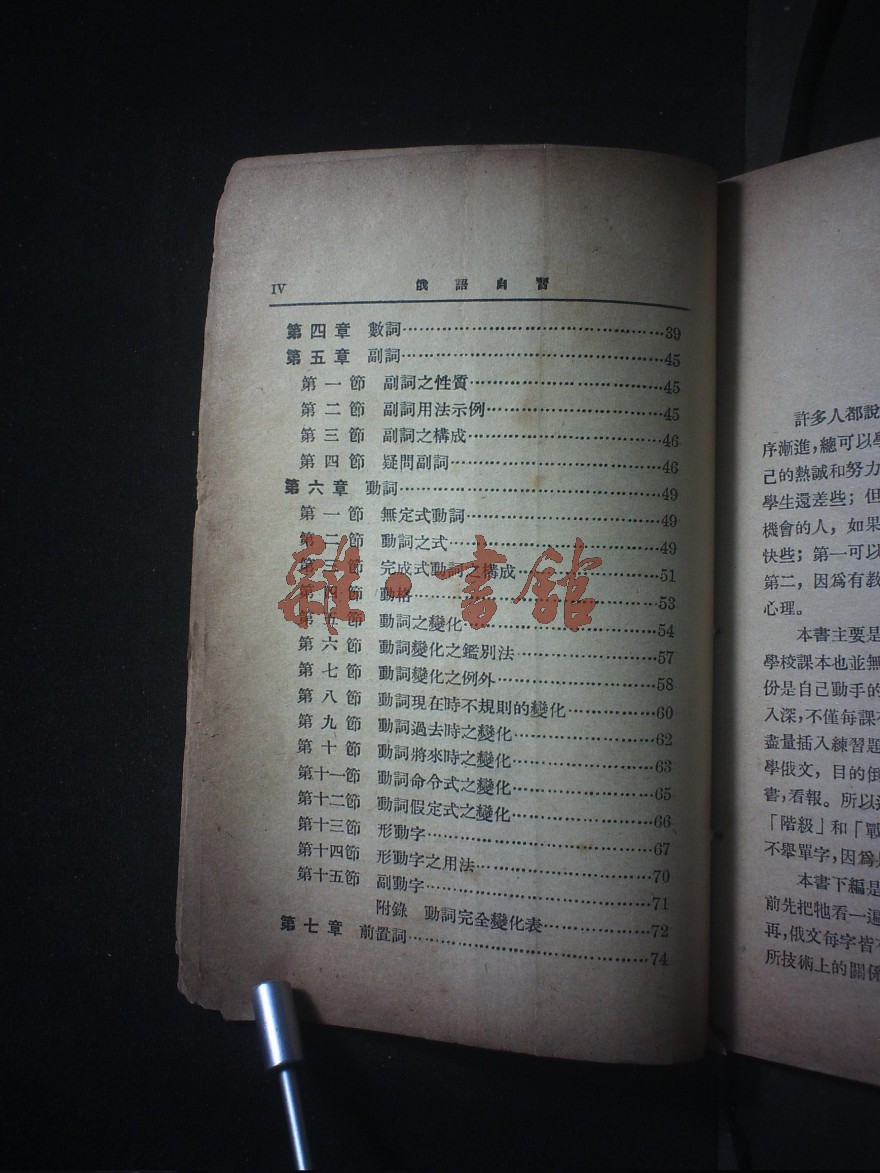 IV 俄語自習
第四章 數詞……39
第五章 副詞……45
第一節 副詞之性質……45
第二節 副詞用法示例……45
第三節 副詞之構成……46
第四節 疑問副詞……46
第六章 動詞……49
第一節 無定式動詞……49
第二節 動詞之式……49
第三節 完成式動詞之構成……51
第四節 動格……53
第五節 動詞之變化……54
第六節 動詞變化之鑑別法……57
第七節 動詞變化之例外……58
第八節 動詞現在時不規則的變化……60
第九節 動詞過去時之變化……62
第十節 動詞將來時之變化……63
第十一節 動詞命令式之變化……65
第十二節 動詞假定式之變化……66
第十三節 形動字……67
第十四節 形動字之用法……70
第十五節 副動字……71
附錄 動詞完全變化表……72
第七章 前置詞……74
雜·書館
許多人都說
序漸進，總可以學
己的熱誠和努力
學生還差些；但
機會的人，如果
快些；第一可以
第二，因爲有教
心理。
本書主要是
學校課本也並無
份是自己動手的
入深，不僅每課
盡量插入練習題
學俄文，目的倒
書，看報。所以
「階級」和「戰
不舉單字，因爲
本書下編是
前先把牠看一遍
再，俄文每字皆
所技術上的關係